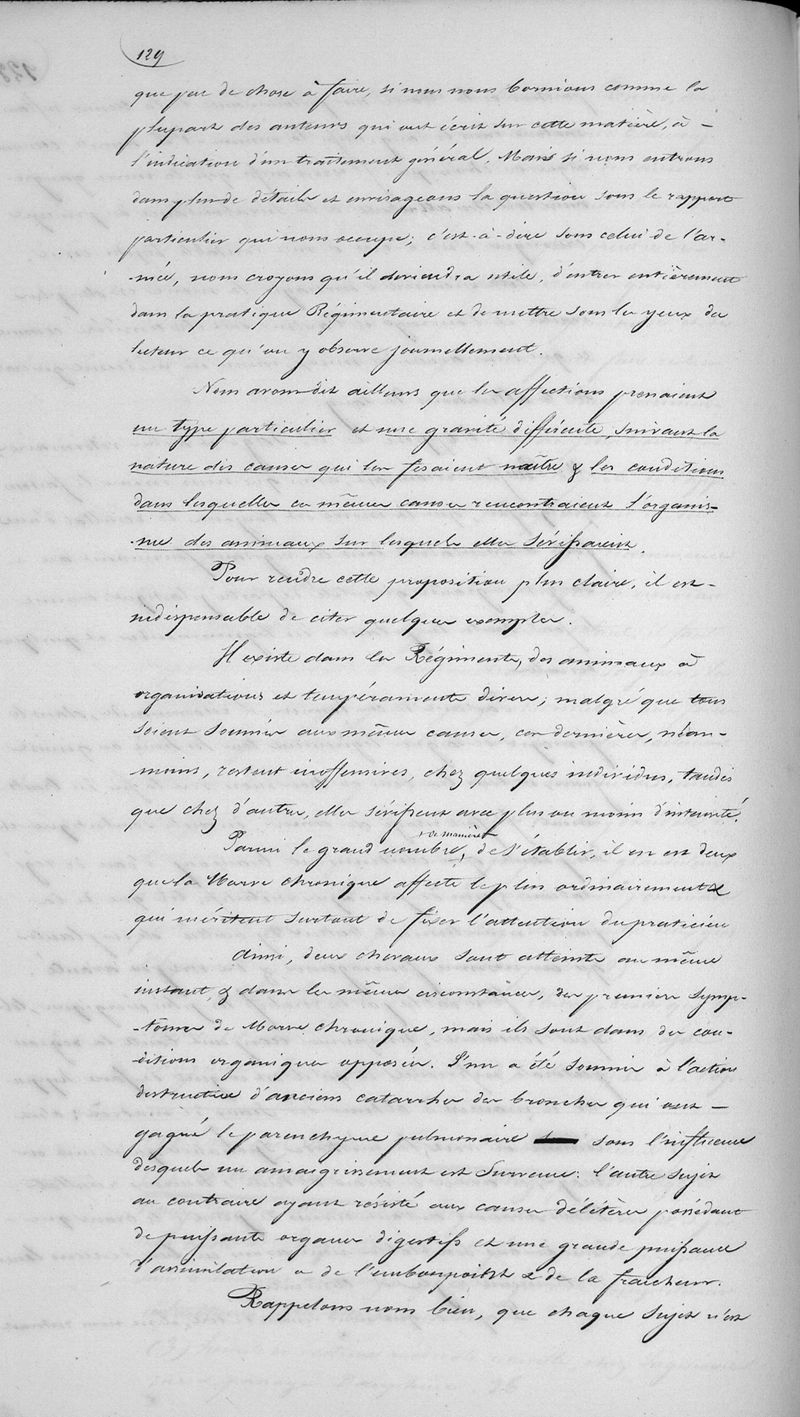 129
que peu de chose à faire, si nous nous bornions comme la
plupart des auteurs qui ont écrit sur cette matière, à –
l'indication d'un traitement général. Mais si nous entrons
dans plus de détails et envisageons la question sous le rapport
particulier qui nous occupe; c'est-à-dire sous celui de l'ar-
-mée, nous croyons qu'il deviendra utile, d'entrer entièrement
dans la pratique Régimentaire et de mettre sous les yeux du
lecteur ce qu'on y observe journellement.
Nous avons dit ailleurs que les affections prenaient
un type particulier et une gravité différente, suivant la
nature des causes qui les fesaient naître & les conditions
dans lesquelles ces mêmes causes rencontraient l'organis-
-me des animaux sur lesquels elles sévissaient.
Pour rendre cette proposition plus claire, il est –
indispensable de citer quelques exemples.
Il existe dans les Régiments, des animaux à
organisations et tempéraments divers; malgré que tous
soient soumis aux mêmes causes, ces dernières, néan-
moins, restent inoffensives, chez quelques individus, tandis
que chez d'autres, elles sévissent avec plus ou moins d'intensité.
+ de manières
Parmi le grand nombre, de s'établir, il en est deux
que la Morve chronique affecte le plus ordinairement &
qui méritent surtout de fixer l'attention du praticien
Ainsi, deux chevaux sont atteints au même
instant, & dans les mêmes circonstances, des premiers symp-
-tomes de Morve chronique, mais ils sont dans des con-
-ditions organiques opposées. L'un a été soumis à l'action
destructive d'anciens catarrhes des bronches qui ont –
gagné le parenchyme pulmonaire sous l'influence
desquels un amaigrissement est survenu: l'autre sujet
au contraire ayant résisté aux causes délétères possédant
de puissants organes digestifs et une grande puissance
d'assimilation a de l'embonpoint & de la fraicheur.
Rappelons nous bien, que chaque sujet n'est